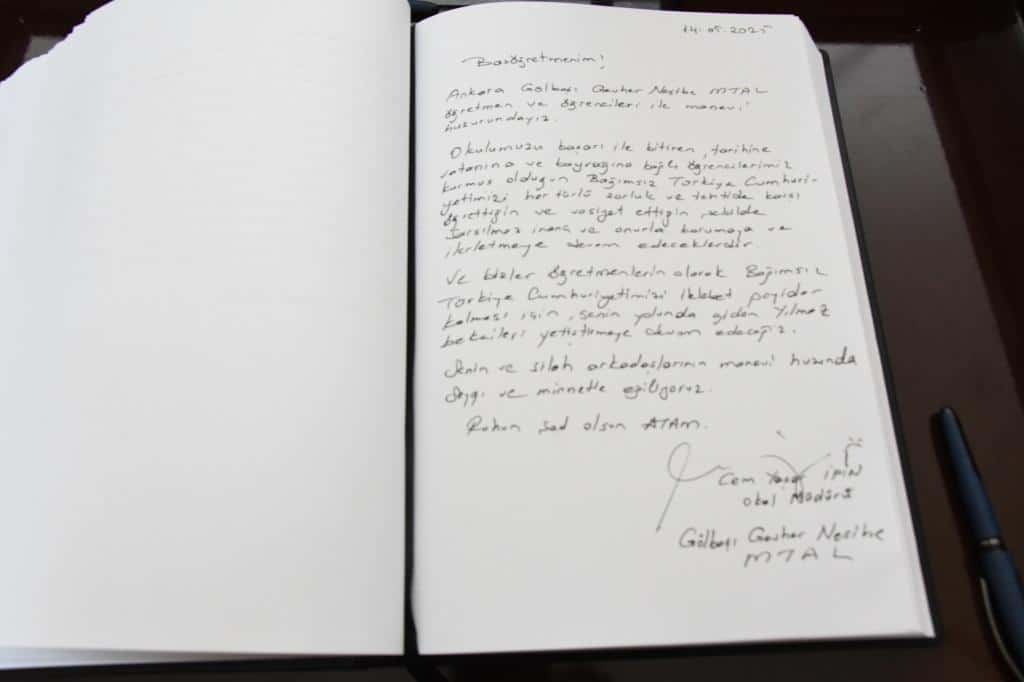 14.05.2025
Başöğretmenim!
Ankara Gölbaşı Gevher Nesibe MTAL
öğretmen ve öğrencileri ile manevi
huzurundayız.
Okulumuzu başarı ile bitiren, tarihine
vatanına ve bayrağına bağlı öğrencilerimiz
kurmuş olduğun Bağımsız Türkiye Cumhuri-
yetimizi her türlü zorluk ve tehtide karşı
öğrettiğin ve vasiyet ettiğin şekilde
sarsılmaz inanç ve onurla korumaya ve
ilerletmeye devam edeceklerdir.
Ve bizler öğretmenlerin olarak Bağımsız
Türkiye Cumhuriyetimizi ilelebet payidar
kalması için, senin yolunda giden yılmaz
bekçileri yetiştirmeye devam edeceğiz.
Senin ve silah arkadaşlarının manevi huzunda
saygı ve minnetle eğiliyoruz.
Ruhun şad olsun ATAM.
Cem
Okul Müdürü
Gölbaşı Gevher Nesibe
MTAL